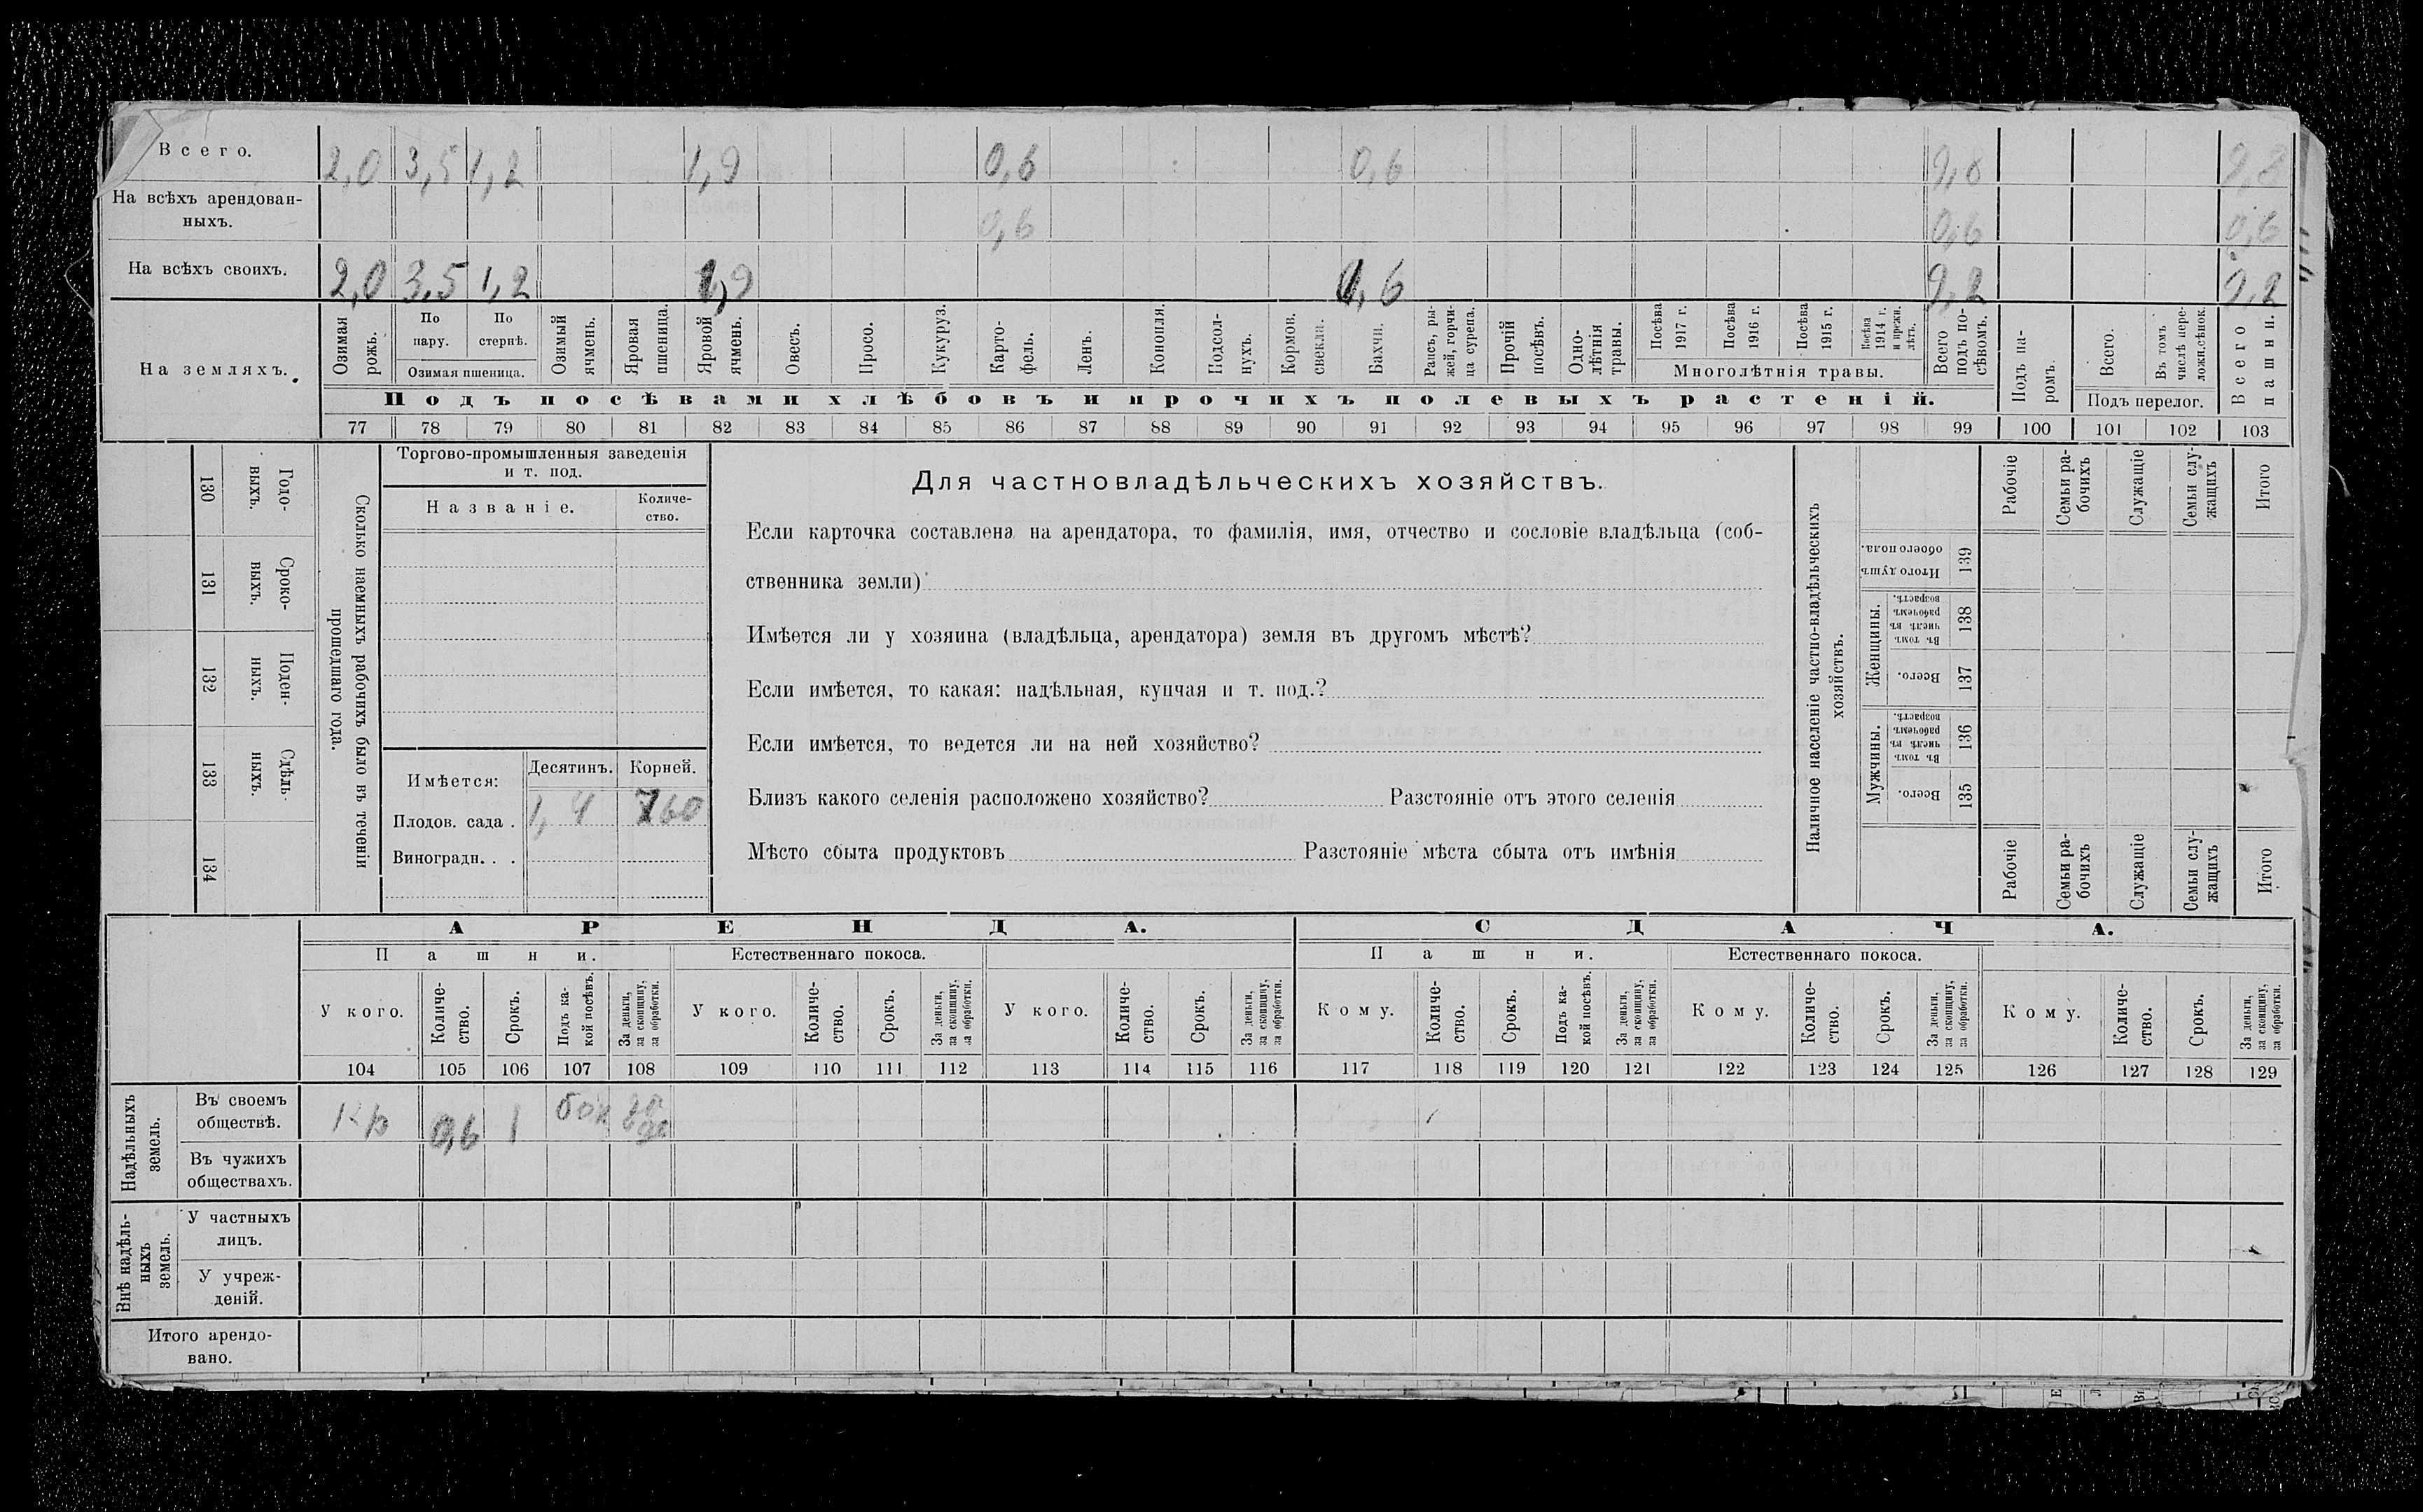 Всего. 2,0 3,5 1,2 1,9 0,6 0,6
На всѣхъ арендован-
ныхъ. 0,6 0,6 0,6
На всѣхъ своихъ. 2,0 3,5 1,2 1,9 0,6 9,2 9,2
На земляхъ.
Озимая рожь.
По пару.
По стернѣ.
Озимая пшеница.
Озимый ячмень.
Яровая пшеница.
Яровой ячмень.
Овесъ.
Просо.
Кукуруз.
Карто-
фель.
Ленъ.
Конопля.
Подсол-
нухъ.
Кормов. свекла.
Бахчи.
Рапсъ, ры-
жей, горчи-
ца сурепа.
Прочій посѣвъ.
Одно-
лѣтнія травы.
Посѣва 1917 г.
Посѣва 1916 г.
Посѣва 1915 г.
Посѣва 1914 г. и прежн. лѣтъ.
Многолѣтнія травы.
Всего подъ по-
сѣвомъ.
Подъ па-
ромъ.
Всего.
Въ томъ числѣ пере-
ложн.сѣнок.
Подъ перелог.
Всего пашни.
Подъ посѣвами хлѣбовъ и прочихъ полевыхъ растеній.
77 78 79 80 81 82 83 84 85 86 87 88 89 90 91 92 93 94 95 96 97 98 99 100 101 102 103
130 Годо-
выхъ.
131 Сроко-
выхъ.
132 Поден-
ныхъ.
133 Сдѣль-
ныхъ.
134
Сколько наемныхъ рабочихъ было въ теченіи
прошедшаго года.
Торгово-промышленныя заведенія
и т. под.
Названіе.
Количе-
ство.
Имѣется: Десятинъ. Корней.
Плодов. сада . 1,4 760
Виноградн. . .
Для частновладѣльческихъ хозяйствъ.
Если карточка составлена на арендатора, то фамилія, имя, отчество и сословіе владѣльца (соб-
ственника земли)
Имѣется ли у хозяина (владѣльца, арендатора) земля въ другомъ мѣстѣ?
Если имѣется, то какая: надѣльная, купчая и т. под.?
Если имѣется, то ведется ли на ней хозяйство?
Близъ какого селенія расположено хозяйство? Разстояніе отъ этого селенія
Мѣсто сбыта продуктовъ Разстояніе мѣста сбыта отъ имѣнія
Наличное населеніе частно-владѣльческихъ
хозяйствъ.
Рабочіе
Семьи ра-
бочихъ
Служащіе
Семьи слу-
жащихъ
Итого
Итого душ обоего пола. 139
Женщины.
Въ томъ числѣ въ рабочемъ возрастѣ. 138
Всего. 137
Мужчины.
Въ томъ числѣ въ рабочемъ возрастѣ. 136
Всего. 135
Рабочіе
Семьи ра-
бочихъ
Служащіе
Семьи слу-
жащихъ
Итого
АРЕНДА. СДАЧА.
Пашни. Естественнаго покоса. Пашни. Естественнаго покоса.
У кого.
Количе-
ство.
Срокъ.
Подъ ка-
кой посѣвъ.
За деньги,
за скопщину,
за обработки.
У кого.
Количе-
ство.
Срокъ.
За деньги,
за скопщину,
за обработки.
У кого.
Количе-
ство.
Срокъ.
За деньги,
за скопщину,
за обработки.
Кому.
Количе-
ство.
Срокъ.
Подъ ка-
кой посѣвъ.
За деньги,
за скопщину,
за обработки.
Кому.
Количе-
ство.
Срокъ.
За деньги,
за скопщину,
за обработки.
Кому.
Количе-
ство.
Срокъ.
За деньги,
за скопщину,
за обработки.
104 105 106 107 108 109 110 111 112 113 114 115 116 117 118 119 120 121 122 123 124 125 126 127 128 129
Надѣльныхъ
земель.
Въ своемъ
обществѣ. Кр 0,6 1
Въ чужихъ
обществахъ.
Внѣ надѣль-
ныхъ
земель.
У частныхъ
лицъ.
У учреж-
деній.
Итого арендо-
вано.